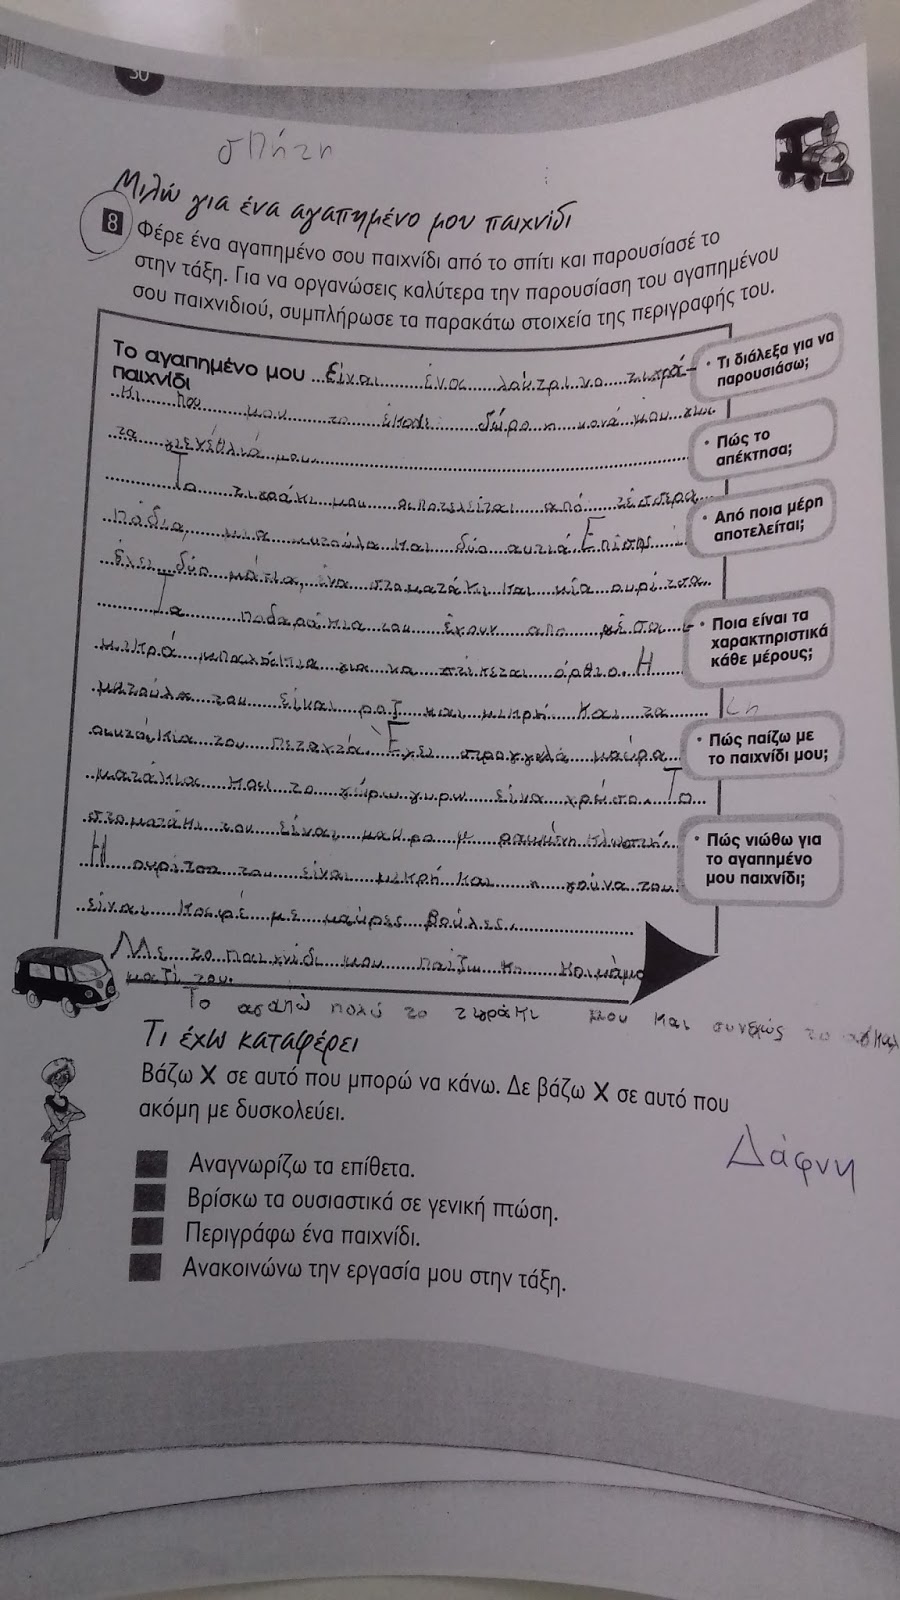 30
σπήτη
Μιλώ για ένα αγαπημένο μου παιχνίδι
8 Φέρε ένα αγαπημένο σου παιχνίδι από το σπίτι και παρουσίασέ το
στην τάξη. Για να οργανώσεις καλύτερα την παρουσίαση του αγαπημένου
σου παιχνιδιού, συμπλήρωσε τα παρακάτω στοιχεία της περιγραφής του.
Το αγαπημένο μου παιχνίδι Είναι ένας λούτρινο τιγρά-
κι που μου το έκανε δώρο η νονά μου
τα γενέθλιά μου.
Το τιγράκι μου αποτελείται από τέσσερα
πόδια, μια μυτούλα και δύο αυτιά Επίσης
έχει δύο μάτια, ένα στοματάκι και μία ουρίτσα.
Τα ποδαράκια του έχουν απο μέσα
μικρά μπαλάκια για να στέκεται όρθιο. Η
ματούλα του είναι ροζ και μικρή και τα
αυτάκια του πεταχτά. Έχει στρογγυλά μαύρα
ματάκια και το γύρω γυρω είνα χρυσο. Το
στοματάκι του είναι μαυρο με ραμμένη κλωστή.
Η ουρίτσα του είναι μικρή και η γούνα του
είναι καφέ με μαύρες βούλες.
Με το παιχνίδι μου παίζω κι κοιμάμα
μαζί του.
Το αγαπώ πολύ το τιγράκι μου και συνεχώς το
• Τι διάλεξα για να
παρουσιάσω;
• Πώς το
απέκτησα;
• Από ποια μέρη
αποτελείται;
• Ποια είναι τα
χαρακτηριστικά
κάθε μέρους;
• Πώς παίζω με
το παιχνίδι μου;
• Πώς νιώθω για
το αγαπημένο
μου παιχνίδι;
Τι έχω καταφέρει
Βάζω Χ σε αυτό που μπορώ να κάνω. Δε βάζω Χ σε αυτό που
ακόμη με δυσκολεύει.
Δάφνη
Αναγνωρίζω τα επίθετα.
Βρίσκω τα ουσιαστικά σε γενική πτώση.
Περιγράφω ένα παιχνίδι.
Ανακοινώνω την εργασία μου στην τάξη.